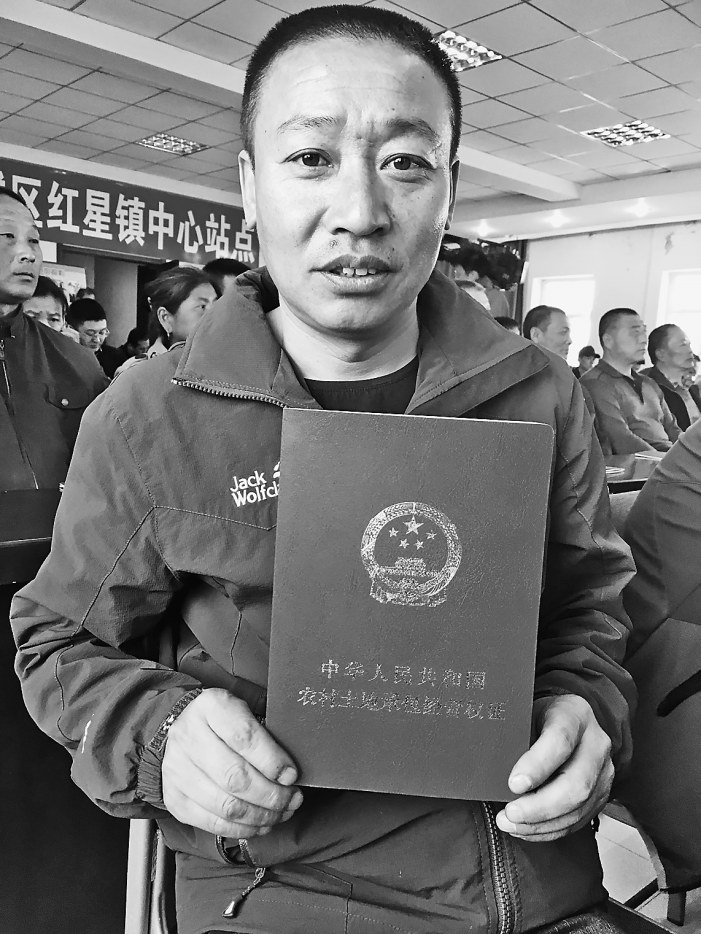 区红星镇中心站点
Jack
Wolfs
中华人民共和国
农村土地承包经营权证